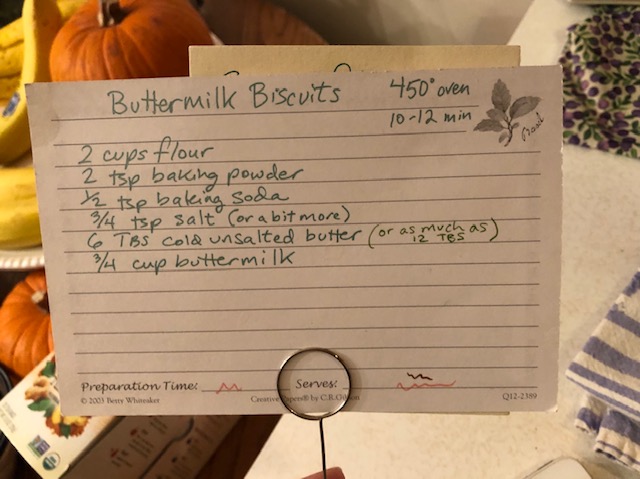 Buttermilk Biscuits
450° oven
10-12 min
Basil
2 cups flour
2 tsp baking powder
1/2 tsp baking soda
3/4 tsp salt (or a bit more)
6 TBS cold unsalted butter (or as much as 12 TBS)
3/4 cup buttermilk
Preparation Time:
Serves:
© 2003 Betty Whiteaker
Creative Papers® by C.R. Gibson
Q12-2389